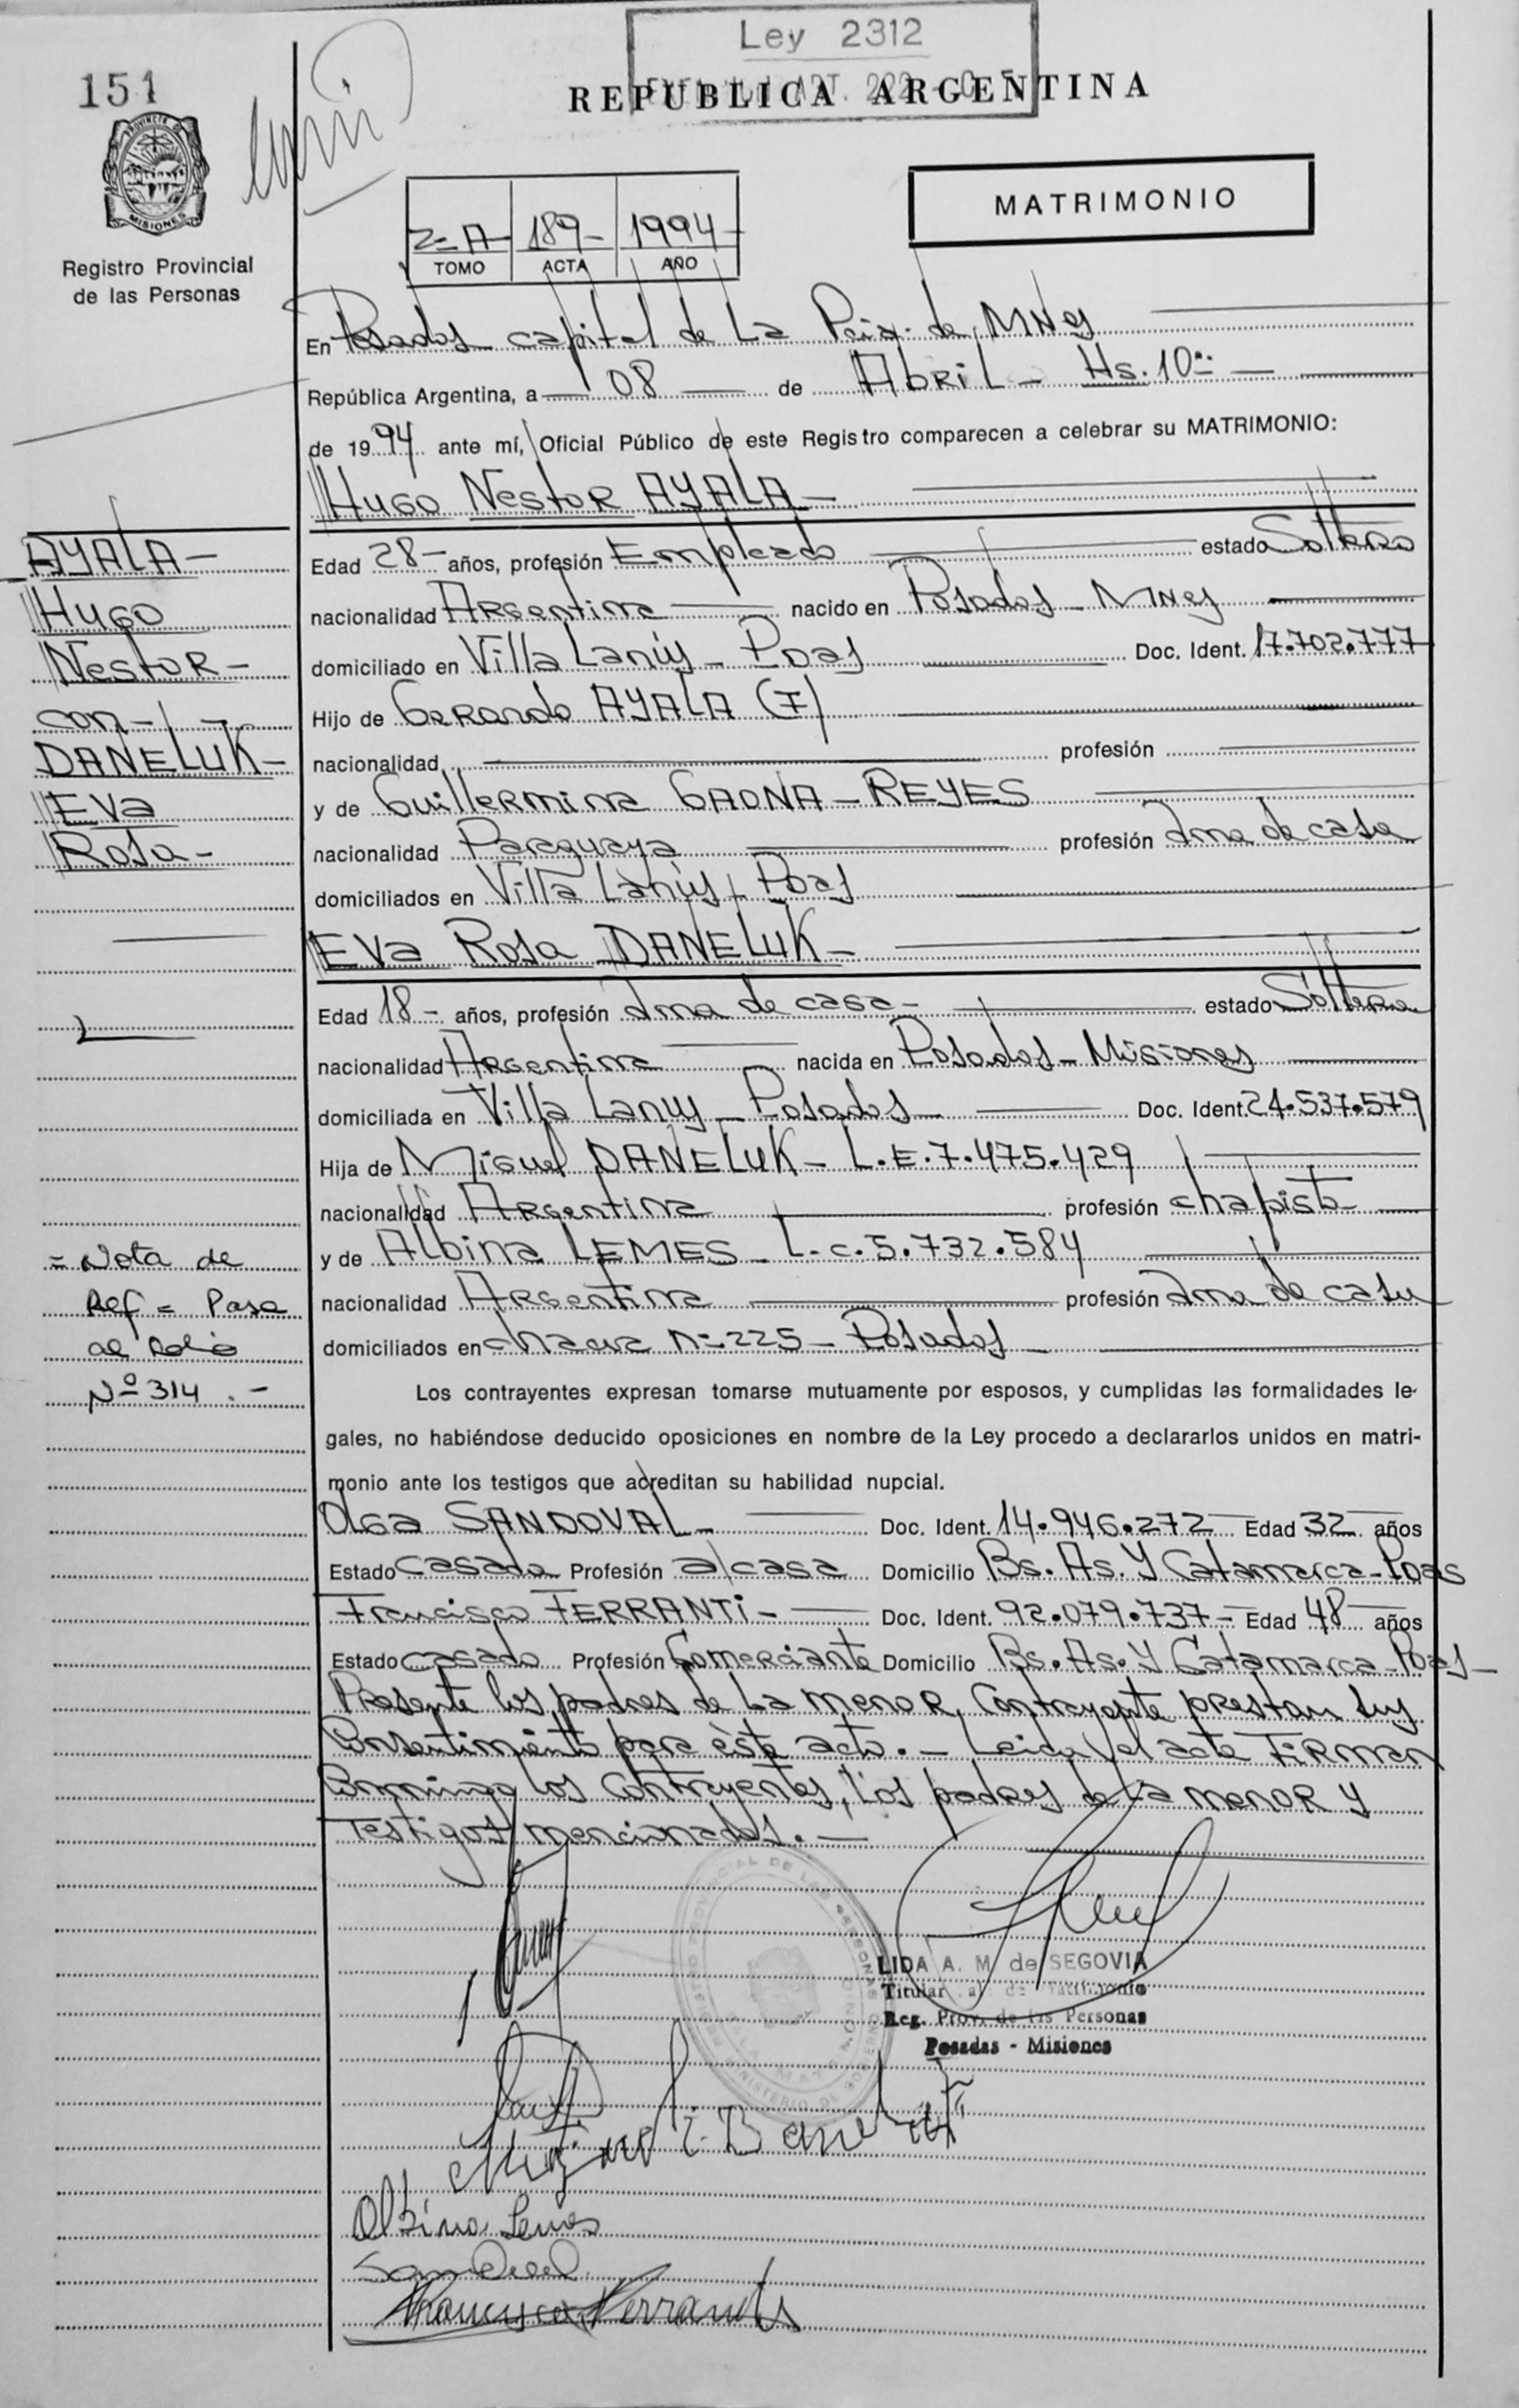 Ley 2312
151
REPUBLICA ARGENTINA
PROVINCIA D
MISIONES
Registro Provincial
de las Personas
MATRIMONIO
2-A- 189- 1994-
TOMO ACTA AÑO
En Posadas capital de La Pcia. de Mnes
República Argentina, a 08 de Abril - Hs. 10
de 1994 ante mí, Oficial Público de este Registro comparecen a celebrar su MATRIMONIO:
Hugo Nestor AYALA-
Edad 28- años, profesión Empleado estado Soltero
nacionalidad Argentina nacido en Posadas - Mnes
domiciliado en Villa Lanús - Pdas Doc. Ident. 17.702.777
Hijo de Gerardo AYALA (F)
nacionalidad profesión
y de Guillermina GAONA - REYES
nacionalidad Paraguaya profesión Ama de casa
domiciliados en Villa Lanús - Pdas
Eva Rosa DANELUK-
Edad 18- años, profesión Ama de casa- estado Soltera
nacionalidad Argentina nacida en Posadas - Misiones
domiciliada en Villa Lanus - Posadas Doc. Ident. 24.537.579
Hija de Miguel DANELUK - L.E. 7.475.429
nacionalidad Argentina profesión chapista
y de Albina LEMES - L.C. 5.732.584
nacionalidad Argentina profesión Ama de casa
domiciliados en chacra Nº 225 - Posadas
Los contrayentes expresan tomarse mutuamente por esposos, y cumplidas las formalidades le-
gales, no habiéndose deducido oposiciones en nombre de la Ley procedo a declararlos unidos en matri-
monio ante los testigos que acreditan su habilidad nupcial.
Olga SANDOVAL - Doc. Ident. 14.946.272 Edad 32 años
Estado Casada Profesión a/casa Domicilio Bs. As. Y Catamarca - Pdas
Francisco FERRANTI - Doc. Ident. 92.079.737 - Edad 48 años
Estado casado Profesión Comerciante Domicilio Bs. As. Y Catamarca - Pdas -
Presente los padres de la menor, Contrayente prestan sus
Consentimiento para éste acto. - Leida el acta Firman
Conmigo los Contrayentes, los padres de la menor y
Testigos mencionados. -
AYALA -
Hugo
Nestor -
con -
DANELUK -
Eva
Rosa -
= Nota de
Ref = Pase
al Folio
Nº 314 . -
LIDA A. M. de SEGOVIA
Titular de Matrimonio
Reg. Prov. de las Personas
Posadas - Misiones
Albina Lemes
Sandoval